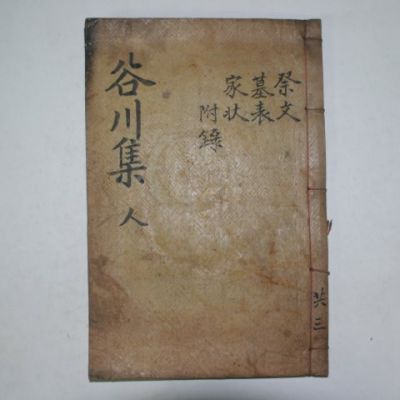 谷川集 人
祭文
墓表
家状
附錄
共三